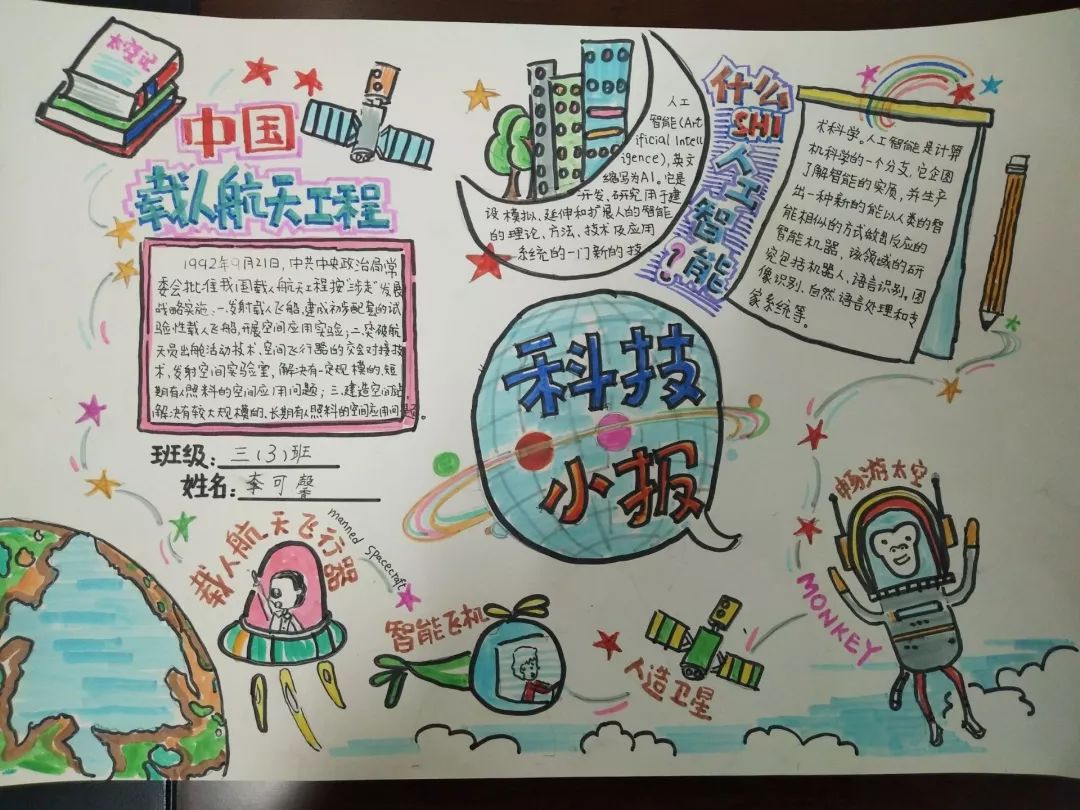 太空记
中国
载人航天工程
1992年9月21日,中共中央政治局常
委会批准我国载人航天工程按“三步”发展
战略实施。一.发射载人飞船,建成初步配套的试
验性载人飞船,开展空间应用实验;二.突破航
天员出舱活动技术、空间飞行器的交会对接技
术,发射空间实验室,解决有一定规模的、短
期有人照料的空间应用问题;三.建造空间站
解决有较大规模的、长期有人照料的空间应用问题。
班级:三(3)班
姓名:李可馨
人工
智能(Art
ificial Intell
igence),英文
缩写为AI。它是
开发、研究用于建
设模拟、延伸和扩展人的智能
的理论、方法、技术及应用
系统的一门新的技
什么
SHI
人工智能?
术科学。人工智能是计算
机科学的一个分支,它企图
了解智能的实质,并生产
出一种新的能以人类的智
能相似的方式做出反应的
智能机器,该领域的研
究包括机器人、语言识别。图
像识别、自然语言处理和专
家系统等。
科技
小报
载人航天飞行器
manned spacecraft
智能飞机
人造卫星
畅游太空
MONKEY